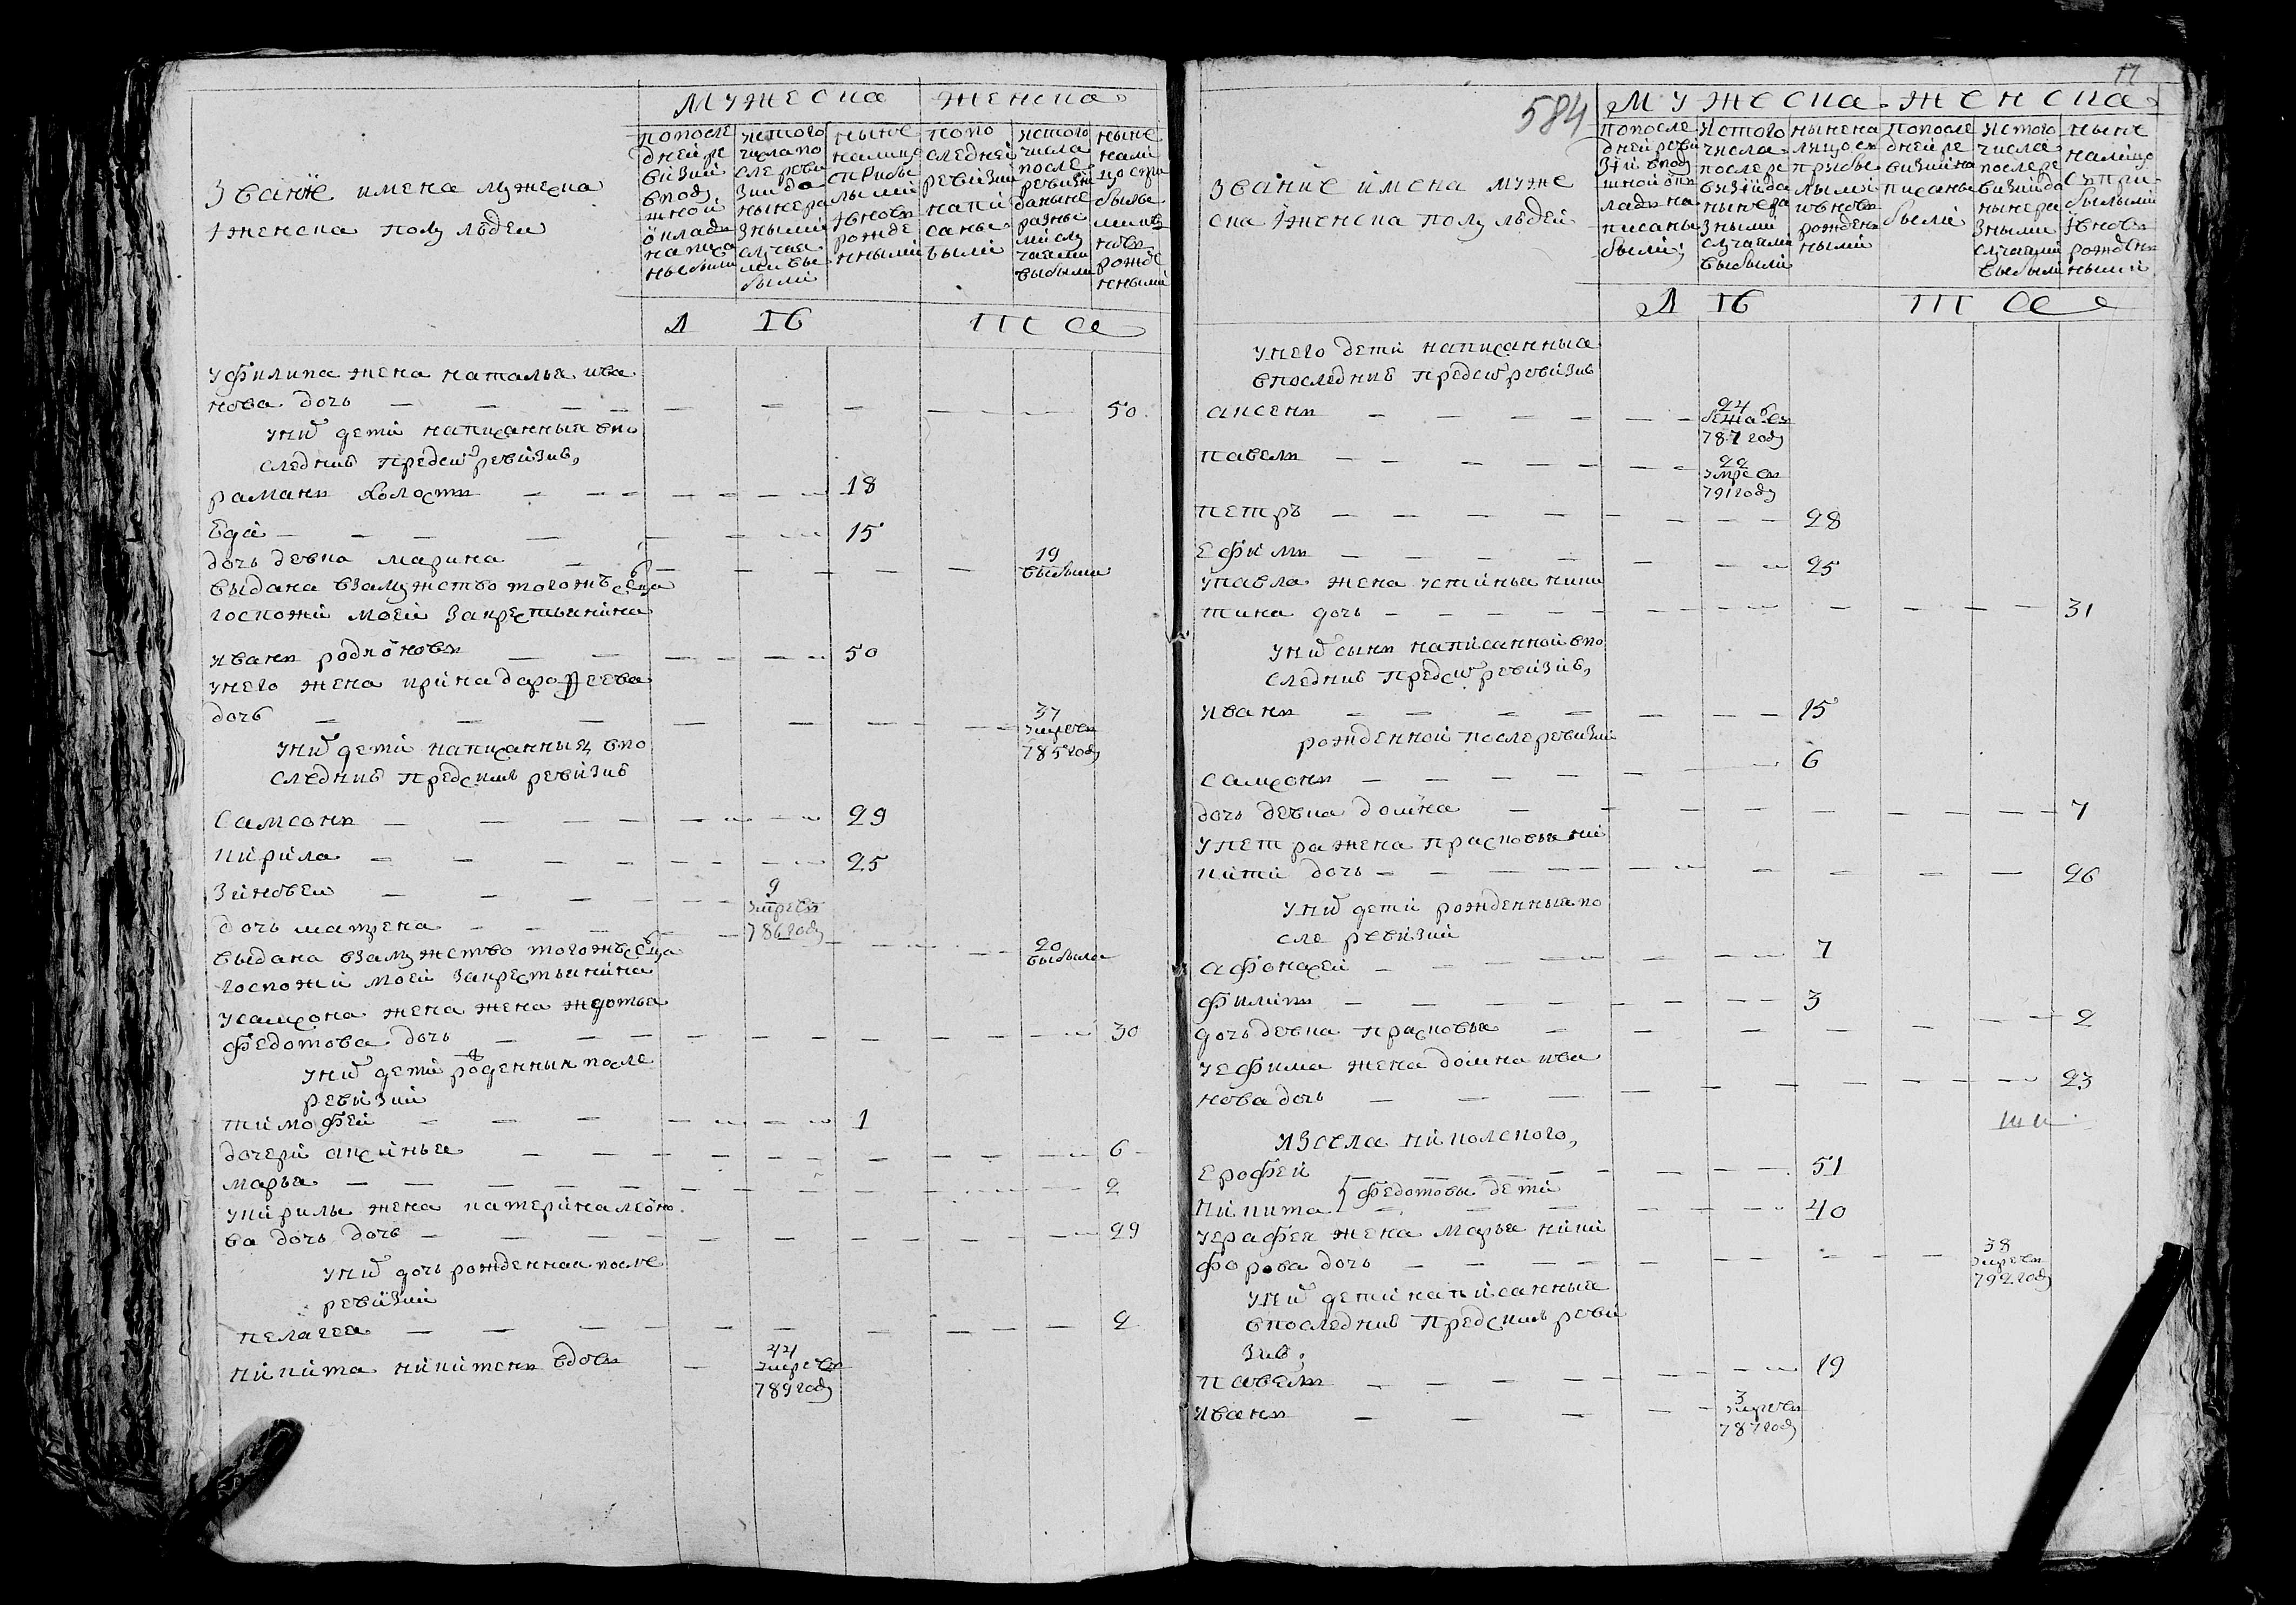 МУЖЕСКА ЖЕНСКА
Званiе имена мужеска
i женска полу людеи
попосле дней ре визии впод ушной окладъ написа ны были
истого числа по сле реви зии до ныне ра зными случая ми вы были
ныне налицо сприбы лыми iвновь рожде нными
попо следней ревизии напи саны были
истого числа после ревизiи доныне разны ми слу чаями выбыли
ныне нали цо спри былы ми iв новь рожде нными
ЛѢТА
уфилипа жена наталья ива
нова дочь 50
уних дети написанныя впо
следнив предсиѣ ревизив,
раманъ холостъ 18
Еда 15
дочь девка марина 19 выбыла
выдана взамужство тогожъ села
госпожи моеи закрестьянина
иванъ родионовъ 50
унего жена ирина дарофеева
дочь 37 умерла 785 году
уних дети написанныя впо
следнив предсимъ ревизив
Самсонъ 29
кирила 25
Зиновеи 9 умреъ 786 году
дочь матрена 20 выбыла
выдана взамужство тогожъ села
госпожи моеи закрестьянина
усамсона жена жена
федотова дочь 30
уних дети роженныя после
ревизии
тимофеи 1
дочери аксинья 6
марья 2
укирилы жена катерина леоно
ва дочь дочь 29
уних дочь рожденная после
ревизии
пелагея 2
никита никитенъ вдовъ 44 умре 789 году
17
584
МУЖЕСКА ЖЕНСКА
Званiе имена муже
ска iженска полу людеи
попосле дней реви зiи впод ушной ок ладъ на писаны были,
Истого числа после ре визiи до ныне ра зными случаями выбыли
ныне на лицо съ прибы лыми ивновь рожден ными
попосле дней ре визии на писаны были
истого числа после ре визии до ныне ра зными случаями выбыли
ныне налицо спри былыми iвновь рожден ными
ЛѢТА
унего дети написанныа
впоследнив предсиѣ ревизив
аксенъ 24 бежалъ 787 году
павелъ 22 умре 791 году
петръ 28
ефимъ 25
упавла жена устинья ники
тина дочь 31
уних сынъ написаннои впо
следнив предсиѣ ревизив,
иванъ 15
рожденнои после ревизии
самсонъ 6
дочь девка домна 7
упетра жена прасковья ни
кити дочь 26
уних дети рожденныя по
сле ревизии
афонасеи 7
филипъ 3
дочь девка прасковья 2
уефима жена домна ива
нова дочь 23
изсела никольского,
ерофеи 51
федотовы дети
никита 40
уерафея жена марья ники
форова дочь 38 умре 792 году
уних дети написанныя
впоследнив предсимъ реви
зив,
павелъ 19
иванъ 3 умре 787 году